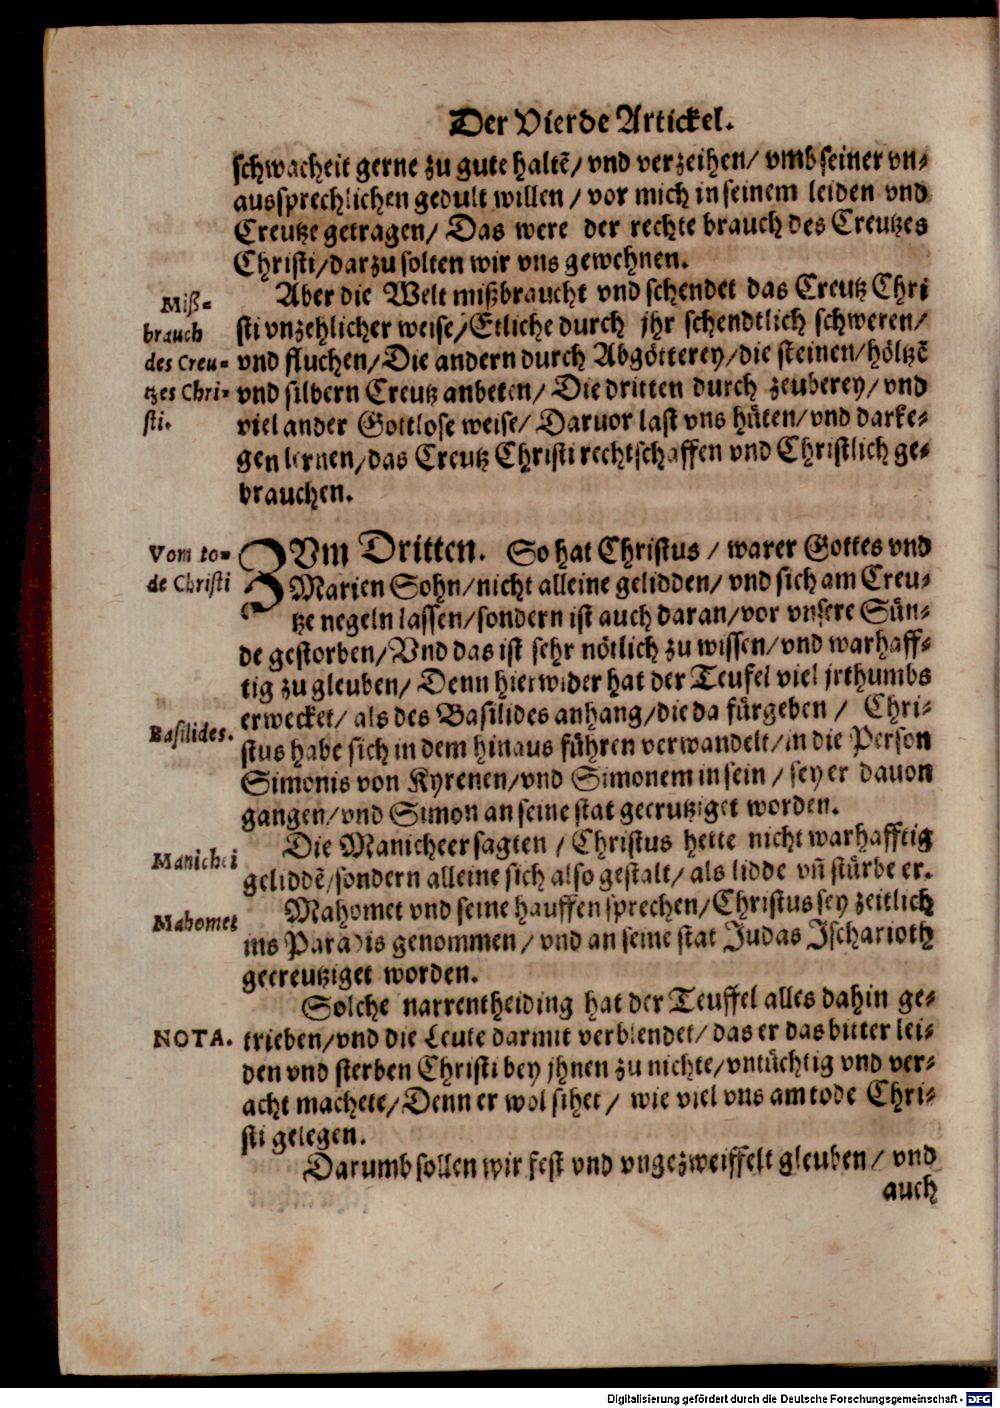 Der Vierde Artickel.
schwacheit gerne zu gute haltẽ/ vnd verzeihen/ vmb seiner vn-
aussprechlichen gedult willen / vor mich in seinem leiden vnd
Creutze getragen/ Das were der rechte brauch des Creutzes
Christi/ darzu solten wir vns gewehnen.
Miß-
brauch
des Creu-
tzes Chri-
sti.
Aber die Welt mißbraucht vnd schendet das Creutz Chri
sti vnzehlicher weise/ Etliche durch jhr schendtlich schweren/
vnd fluchen/ Die andern durch Abgötterey/ die steinen/ höltzẽ
vnd silbern Creutz anbeten/ Die dritten durch zeuberey/ vnd
viel ander Gottlose weise/ Daruor last vns hüten/ vnd darke-
gen lernen/ das Creutz Christi rechtschaffen vnd Christlich ge-
brauchen.
Vom to-
de Christi
ZVm Dritten. So hat Christus / warer Gottes vnd
Marien Sohn/ nicht alleine gelidden/ vnd sich am Creu-
tze negeln lassen/ sondern ist auch daran/ vor vnsere Sün-
de gestorben/ Vnd das ist sehr nötlich zu wissen/ vnd warhaff-
tig zu gleuben/ Denn hierwider hat der Teufel viel jrthumbs
Basilides.
erwecket/ als des Basilides anhang/ die da fürgeben / Chri-
stus habe sich in dem hinaus führen verwandelt/ in die Person
Simonis von Kyrenen/ vnd Simonem in sein / sey er dauon
gangen/ vnd Simon an seine stat gecrutziget worden.
Manichei
Die Manicheer sagten / Christus hette nicht warhafftig
geliddẽ/ sondern alleine sich also gestalt/ als lidde vñ stürbe er.
Mahomet
Mahomet vnd seine hauffen sprechen/ Christus sey zeitlich
ins Paradis genommen / vnd an seine stat Judas Jscharioth
gecreutziget worden.
Solche narrentheiding hat der Teuffel alles dahin ge-
NOTA.
trieben/ vnd die Leute darmit verblendet/ das er das bitter lei-
den vnd sterben Christi bey jhnen zu nichte/ vntüchtig vnd ver-
acht machete/ Denn er wol sihet / wie viel vns am tode Chri-
sti gelegen.
Darumb sollen wir fest vnd vngezweiffelt gleuben/ vnd
auch
Digitalisierung gefördert durch die Deutsche Forschungsgemeinschaft - DFG